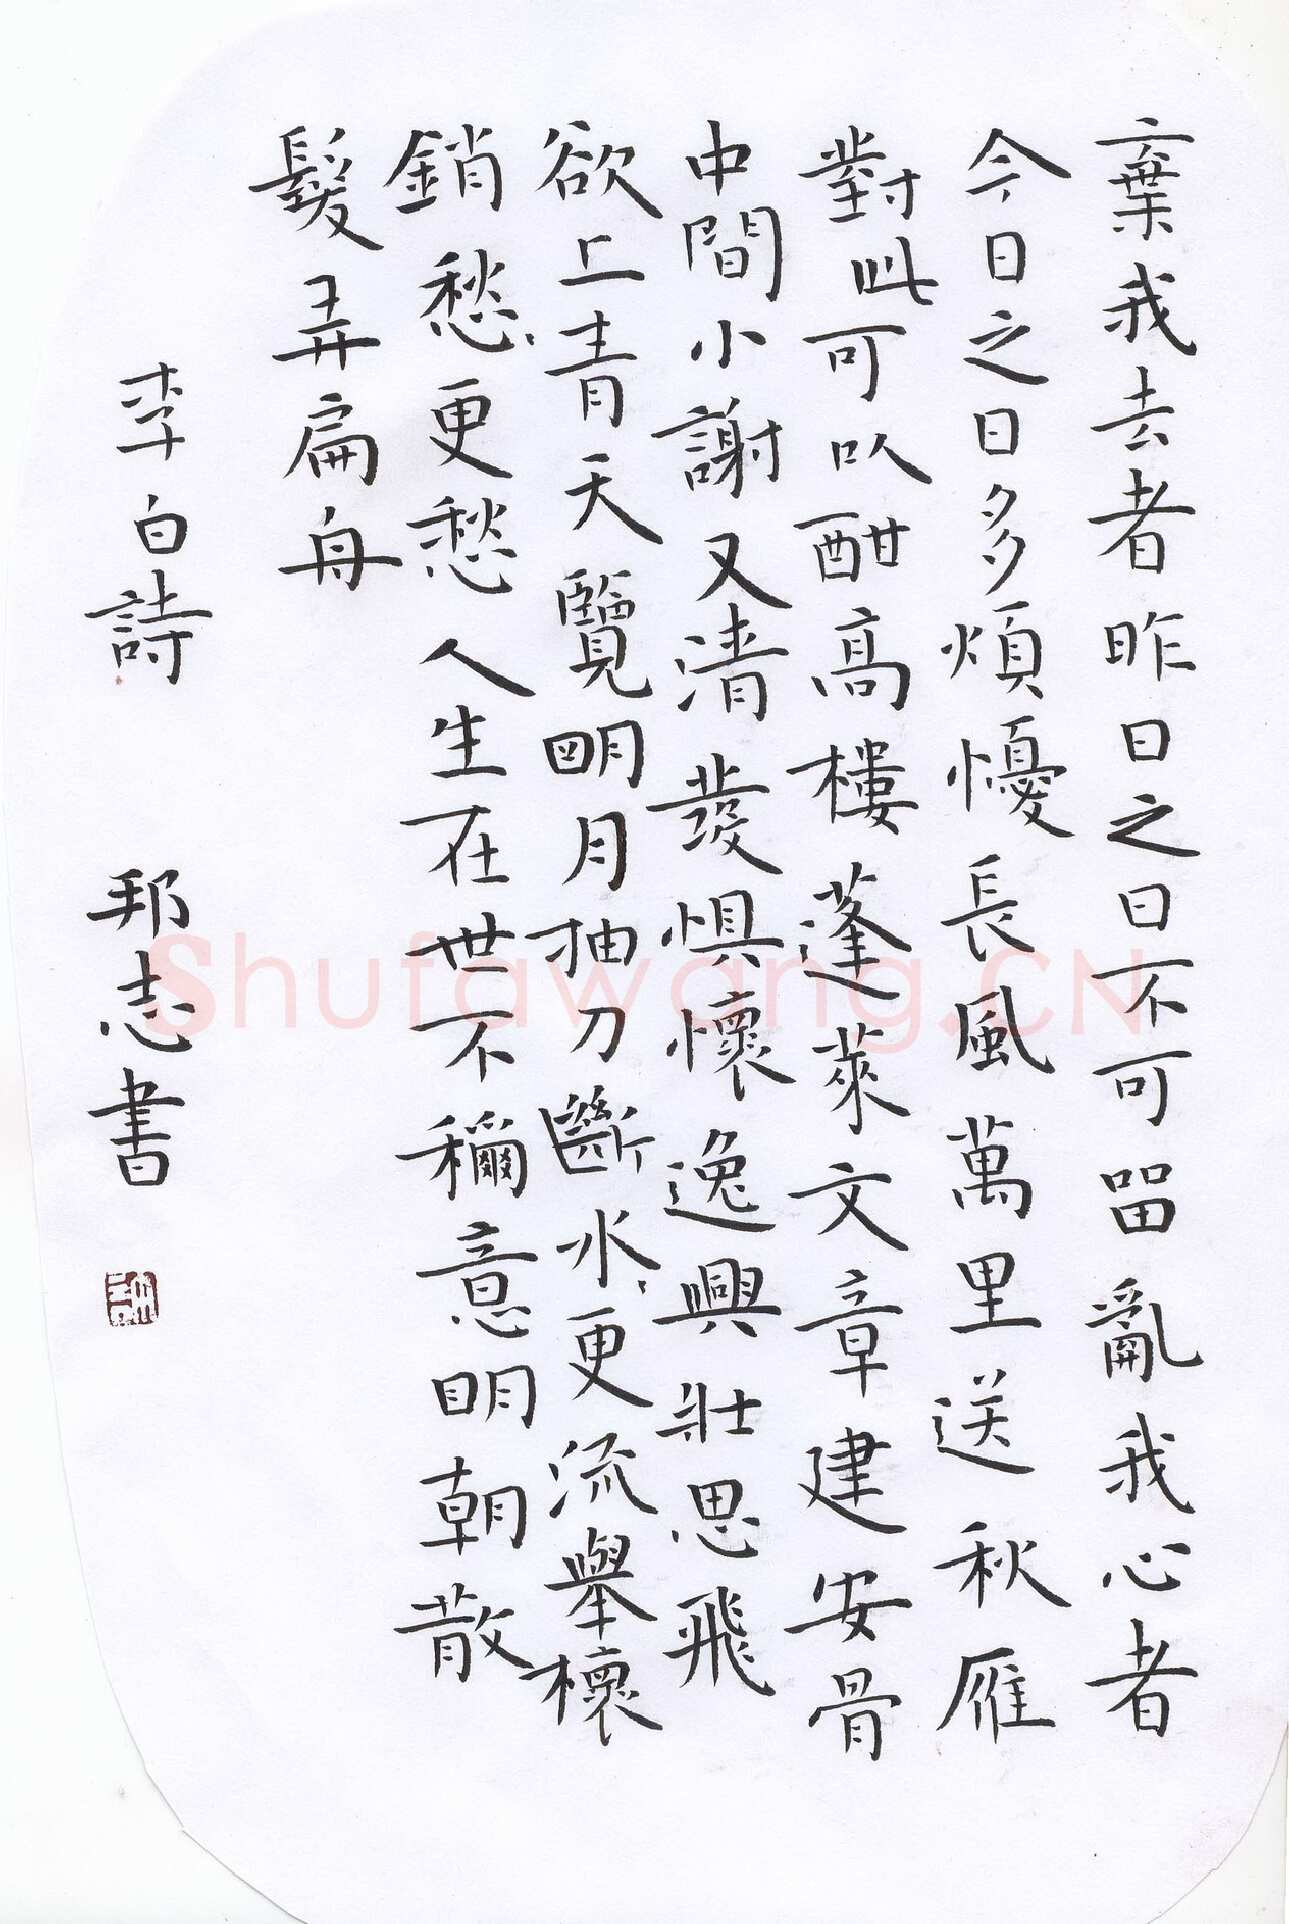 棄我去者昨日之日不可留亂我心者
今日之日多煩憂長風萬里送秋雁
對此可以酣高樓蓬萊文章建安骨
中間小謝又清發惧懷逸興壯思飛
欲上青天覽明月抽刀斷水更流舉櫰
銷愁更愁人生在世不穪意明朝散
髮弄扁舟
李白詩 邦志書
Shufawang.CN